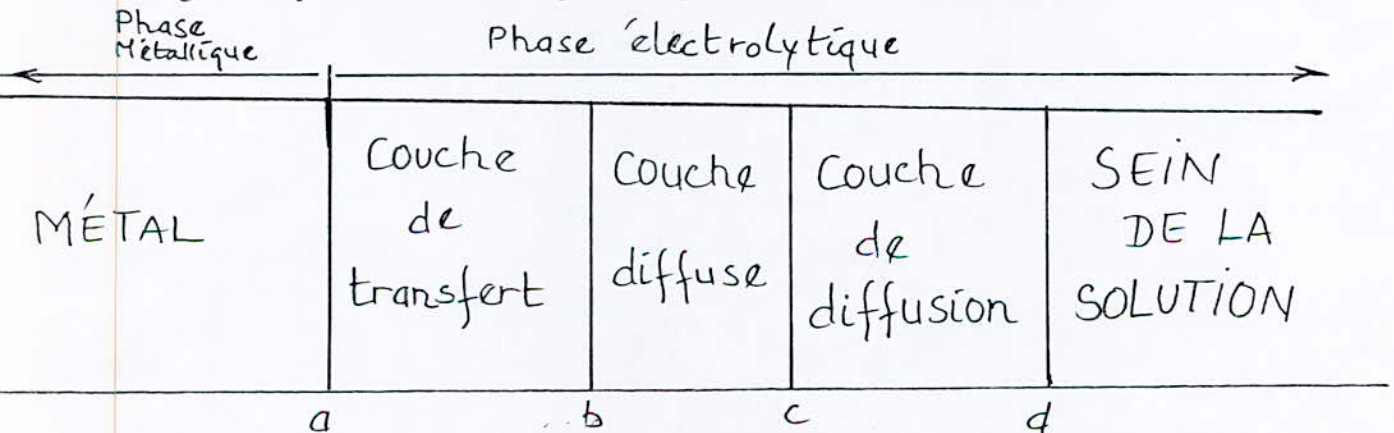 Phase
Métallique
Phase électrolytique
MÉTAL
Couche
de
transfert
Couche
diffuse
Couche
de
diffusion
SEIN
DE LA
SOLUTION
a
b
c
d